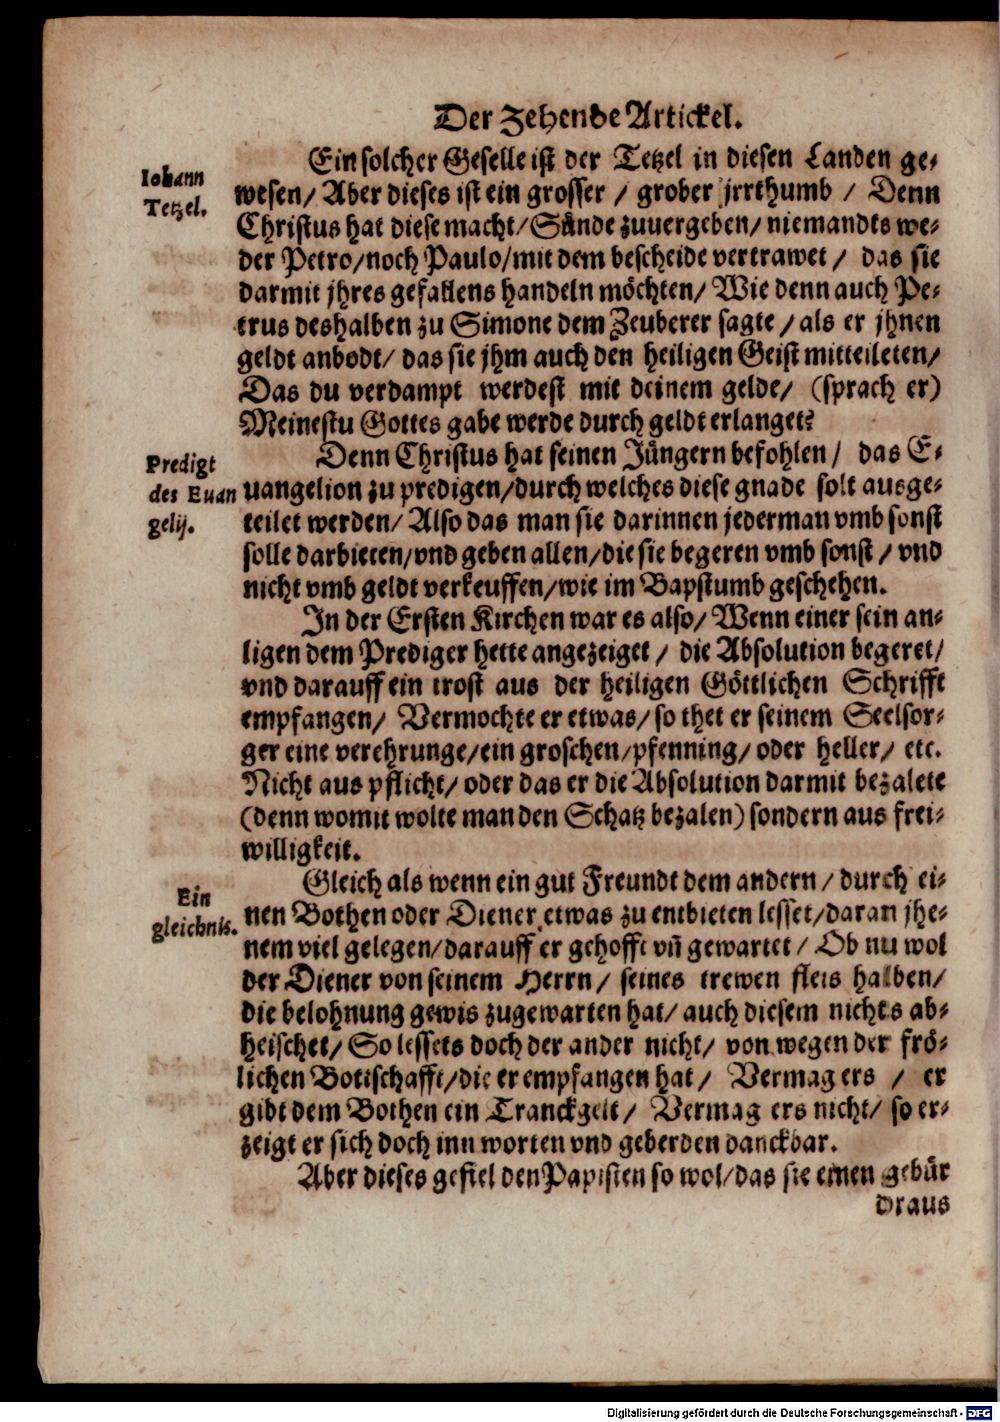 Der Zehende Artickel.
Ein solcher Geselle ist der Tetzel in diesen Landen ge-
Iohann
Tetzel.
wesen/ Aber dieses ist ein grosser / grober jrrthumb / Denn
Christus hat diese macht/ Sünde zuuergeben/ niemandts we-
der Petro/ noch Paulo/ mit dem bescheide vertrawet / das sie
darmit jhres gefallens handeln möchten/ Wie denn auch Pe-
trus deshalben zu Simone dem Zeuberer sagte / als er jhnen
geldt anbodt/ das sie jhm auch den heiligen Geist mitteileten/
Das du verdampt werdest mit deinem gelde/ (sprach er)
Meinestu Gottes gabe werde durch geldt erlanget?
Denn Christus hat seinen Jüngern befohlen / das E-
Predigt
des Euan
gelij.
uangelion zu predigen/ durch welches diese gnade solt ausge-
teilet werden/ Also das man sie darinnen jederman vmb sonst
solle darbieten/ vnd geben allen/ die sie begeren vmb sonst / vnd
nicht vmb geldt verkeuffen/ wie im Bapstumb geschehen.
In der Ersten Kirchen war es also/ Wenn einer sein an-
ligen dem Prediger hette angezeiget / die Absolution begeret/
vnd darauff ein trost aus der heiligen Göttlichen Schrifft
empfangen/ Vermochte er etwas/ so thet er seinem Seelsor-
ger eine verehrunge/ ein groschen/ pfenning/ oder heller/ etc.
Nicht aus pflicht/ oder das er die Absolution darmit bezalete
(denn womit wolte man den Schatz bezalen) sondern aus frei-
willigkeit.
Gleich als wenn ein gut Freundt dem andern / durch ei-
Ein
gleichnis.
nen Bothen oder Diener etwas zu entbieten lesset/ daran jhe-
nem viel gelegen/ darauff er gehofft vn̄ gewartet / Ob nu wol
der Diener von seinem Herrn / seines trewen fleis halben/
die belohnung gewis zugewarten hat/ auch diesem nichts ab-
heischet/ So lessets doch der ander nicht/ von wegen der frö-
lichen Botschafft/ die er empfangen hat / Vermag ers / er
gibt dem Bothen ein Tranckgelt / Vermag ers nicht/ so er-
zeigt er sich doch inn worten vnd geberden danckbar.
Aber dieses gefiel den Papisten so wol/ das sie einen gebür
draus
Digitalisierung gefördert durch die Deutsche Forschungsgemeinschaft - DFG